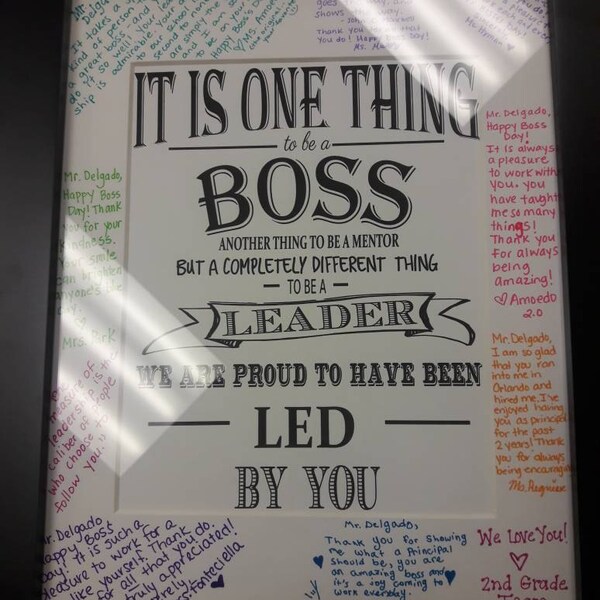 Mr. Delga
It takes a
kind of person
a great boss, and
do it so well. Your
ship is admirable. You
to our second
are simply
and I am so
Happy Boss's Da
Ms. Amoe
shows
Thank you
you do! Happy Boss Day!
Ms. Ma
IT IS ONE THING
to be a
BOSS
ANOTHER THING TO BE A MENTOR
BUT A COMPLETELY DIFFERENT THING
TO BE A
LEADER
WE ARE PROUD TO HAVE BEEN
LED
BY YOU
Mr. Delgado,
Happy Boss
Day! Thank
you for your
kindness.
Your smile
can brighten
anyone's
day.
Mrs. Park
measure of
leadership is the
caliber of people
who choose to
follow you."
Mr. Delgado
Happy Boss
Day! It is such a
pleasure to work for a
like yourself. Thank
for all that you do.
truly appreciated!
Mr. Delgado,
Happy Boss
Day!
It is always
a pleasure
to work with
you. you
have taught
me so many
things!
Thank you
for always
being
amazing!
♡ Amoedo
2.0
Mr. Delgado,
I am so glad
that you ran
into me in
Orlando and
hired me. I've
enjoyed having
you as principal
for the past
2 years! Thank
you for always
being encouraging
Ms. Regniere
Mr. Delgado,
Thank you for showing
me what a principal
should be, you are
an amazing boss and
it's a joy coming to
work everyday.
We Love You!
♡
2nd Grade
Team